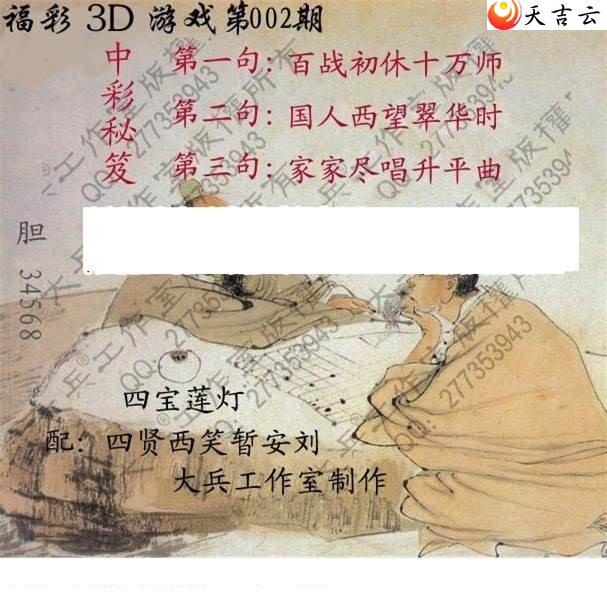 福彩 3D 游戏第002期
天吉云
中彩秘笈
第一句:百战初休十万师
第二句:国人西望翠华时
第三句:家家尽唱升平曲
胆 34568
四宝莲灯
配:四贤西笑暂安刘
大兵工作室制作
大兵®工作室版权所有
QQ:277353943